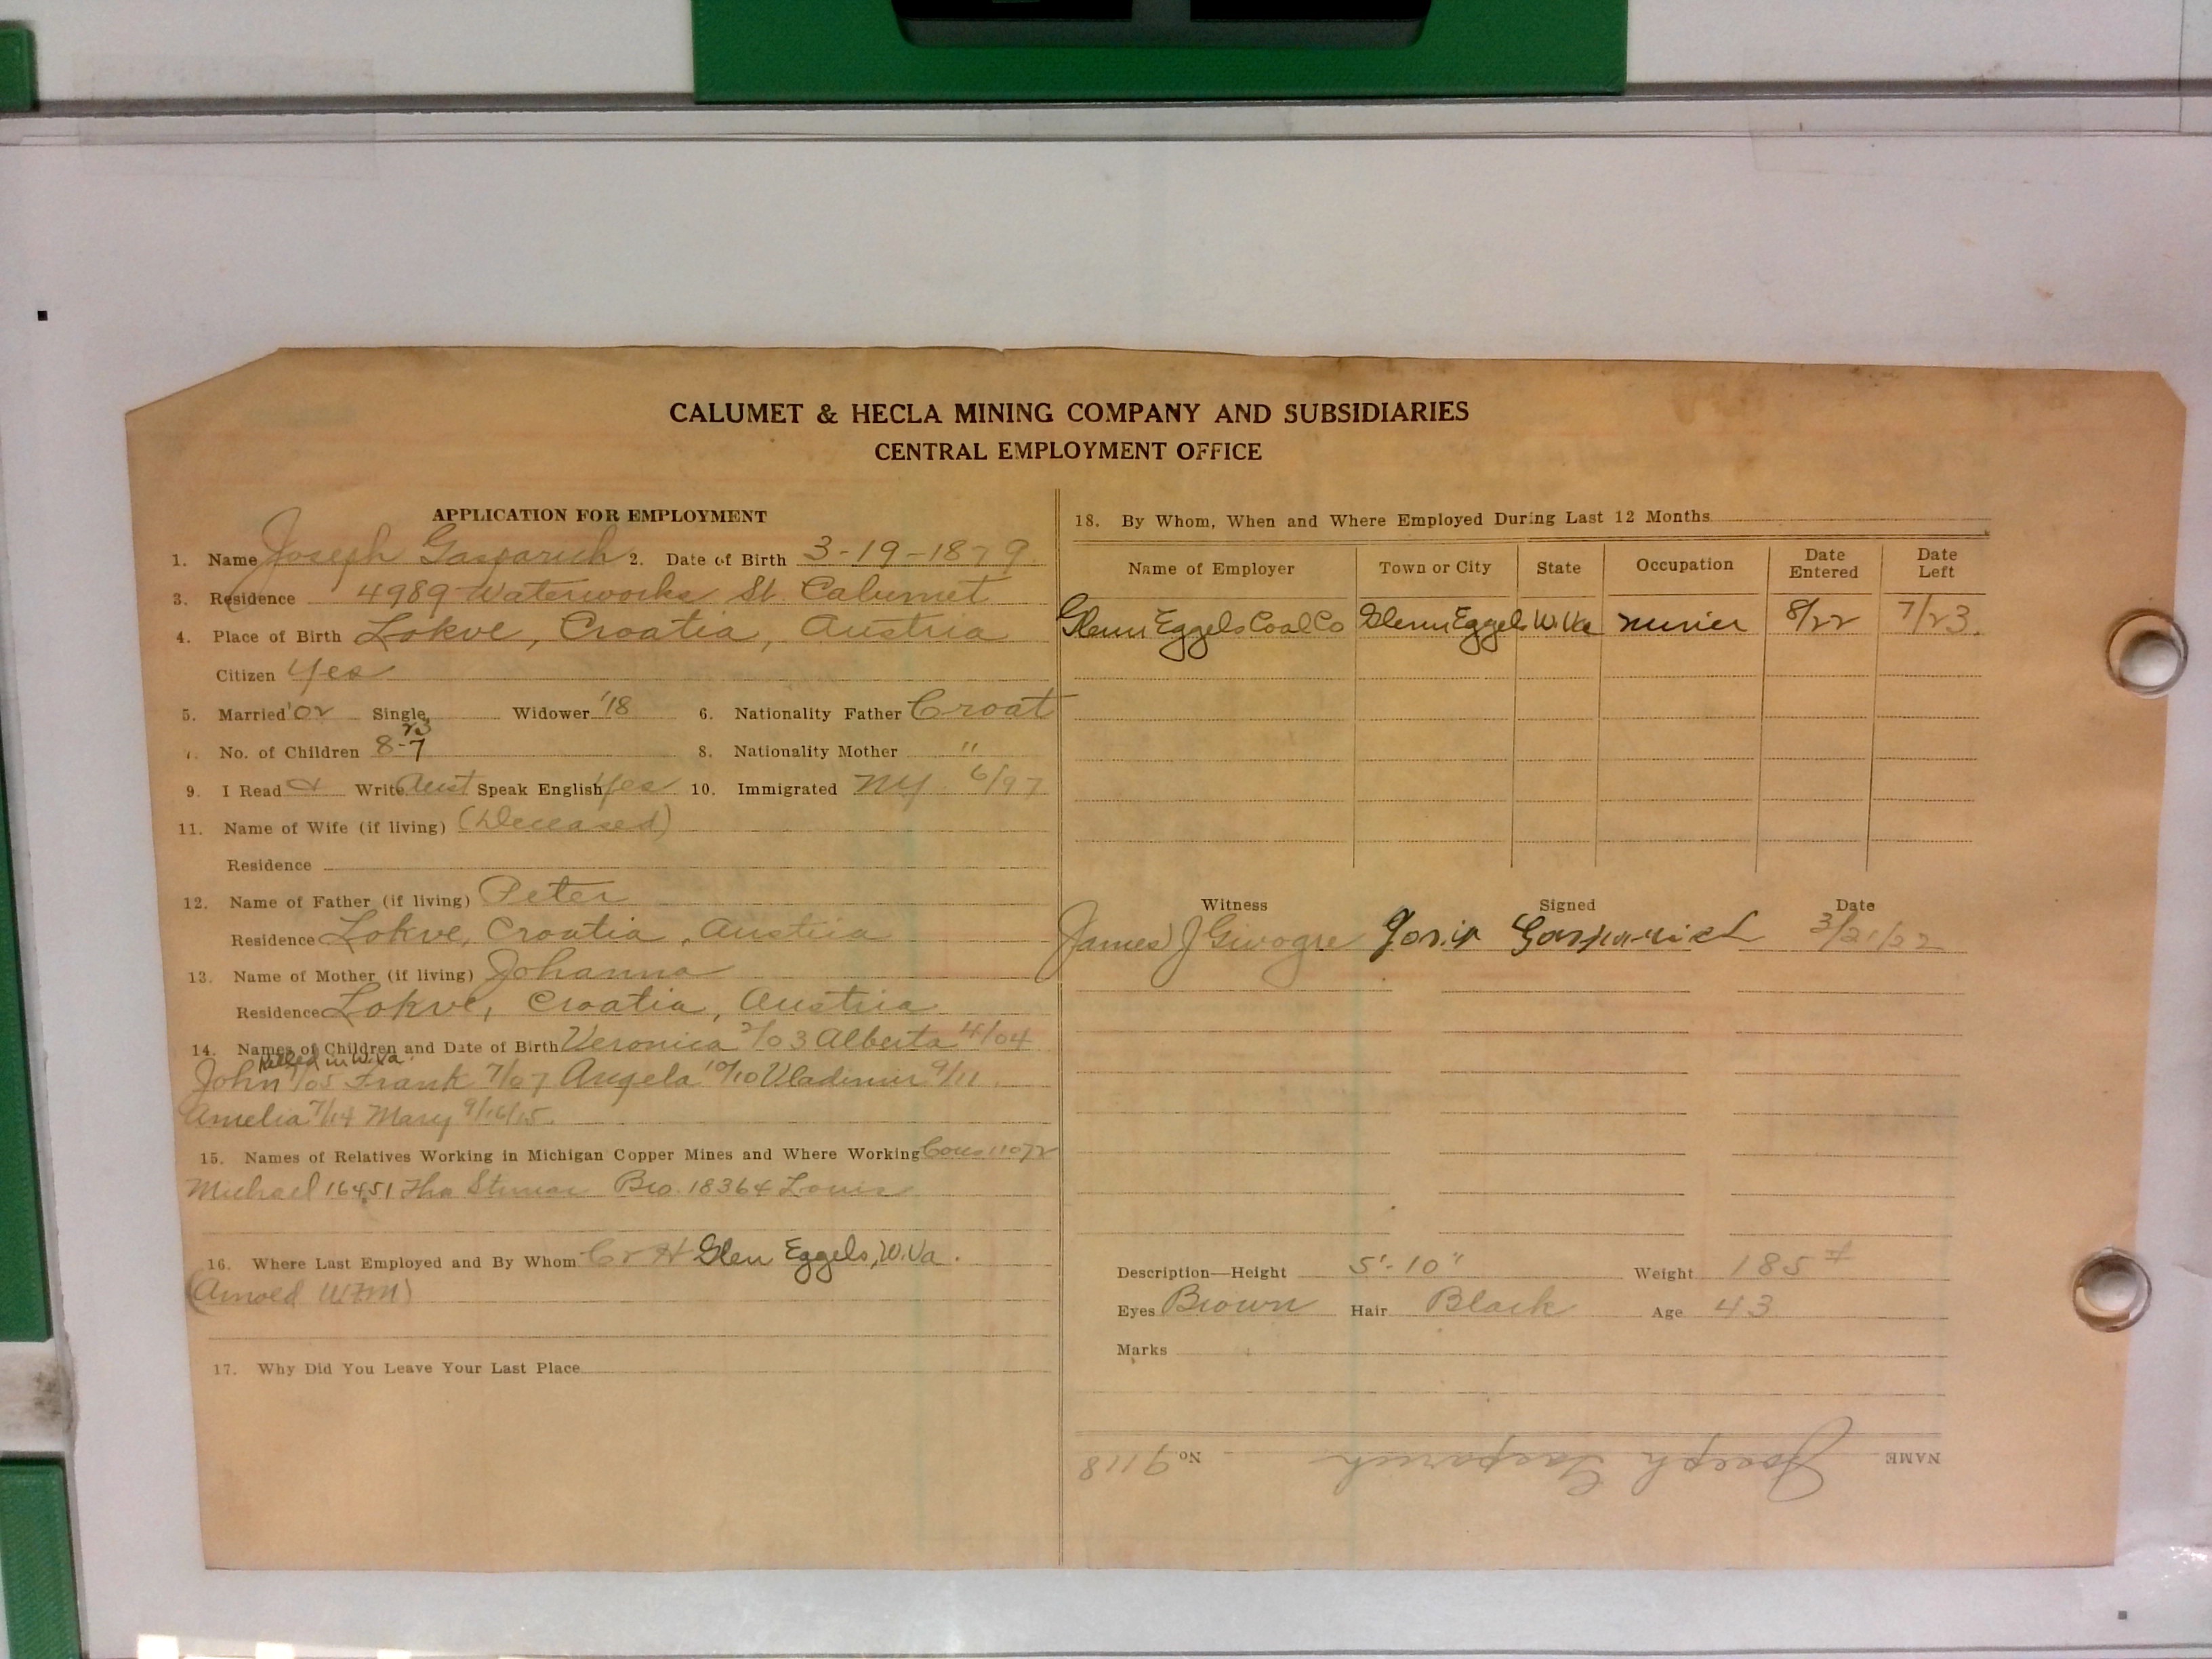 CALUMET & HECLA MINING COMPANY AND SUBSIDIARIES
CENTRAL EMPLOYMENT OFFICE
APPLICATION FOR EMPLOYMENT
1. Name Joseph Gasparich 2. Date of Birth 3-19-1879
3. Residence 4989 Waterworks St. Calumet
4. Place of Birth Lokve, Croatia, Austria
Citizen Yes
5. Married '02 Single Widower '18 6. Nationality Father Croat
7. No. of Children 8-7 23 8. Nationality Mother "
9. I Read & Write Aust Speak English Yes 10. Immigrated NY 6/97
11. Name of Wife (if living) (Deceased)
Residence
12. Name of Father (if living) Peter
Residence Lokve, Croatia, Austria
13. Name of Mother (if living) Johanna
Residence Lokve, Croatia, Austria
14. Names of Children and Date of Birth Veronica 2/03 Alberta 4/04
killed in W.Va.
John /05 Frank 7/07 Angela 10/10 Vladimir 9/11
Amelia 7/14 Mary 9/16/15.
15. Names of Relatives Working in Michigan Copper Mines and Where Working Cous 11072
Michael 16451 Bro. 18364 Louis
16. Where Last Employed and By Whom C & H Glen Eggels, W.Va.
(Arnold
17. Why Did You Leave Your Last Place
18. By Whom, When and Where Employed During Last 12 Months
Name of Employer Town or City State Occupation Date Entered Date Left
Glenn Eggels Coal Co Glenn Eggels W.Va miner 8/22 7/23
Witness Signed Date
James J Josip Gasparich 3/21/22
Description—Height 5'-10" Weight 185 #
Eyes Brown Hair Black Age 43
Marks
NAME Joseph Gasparich No 9118